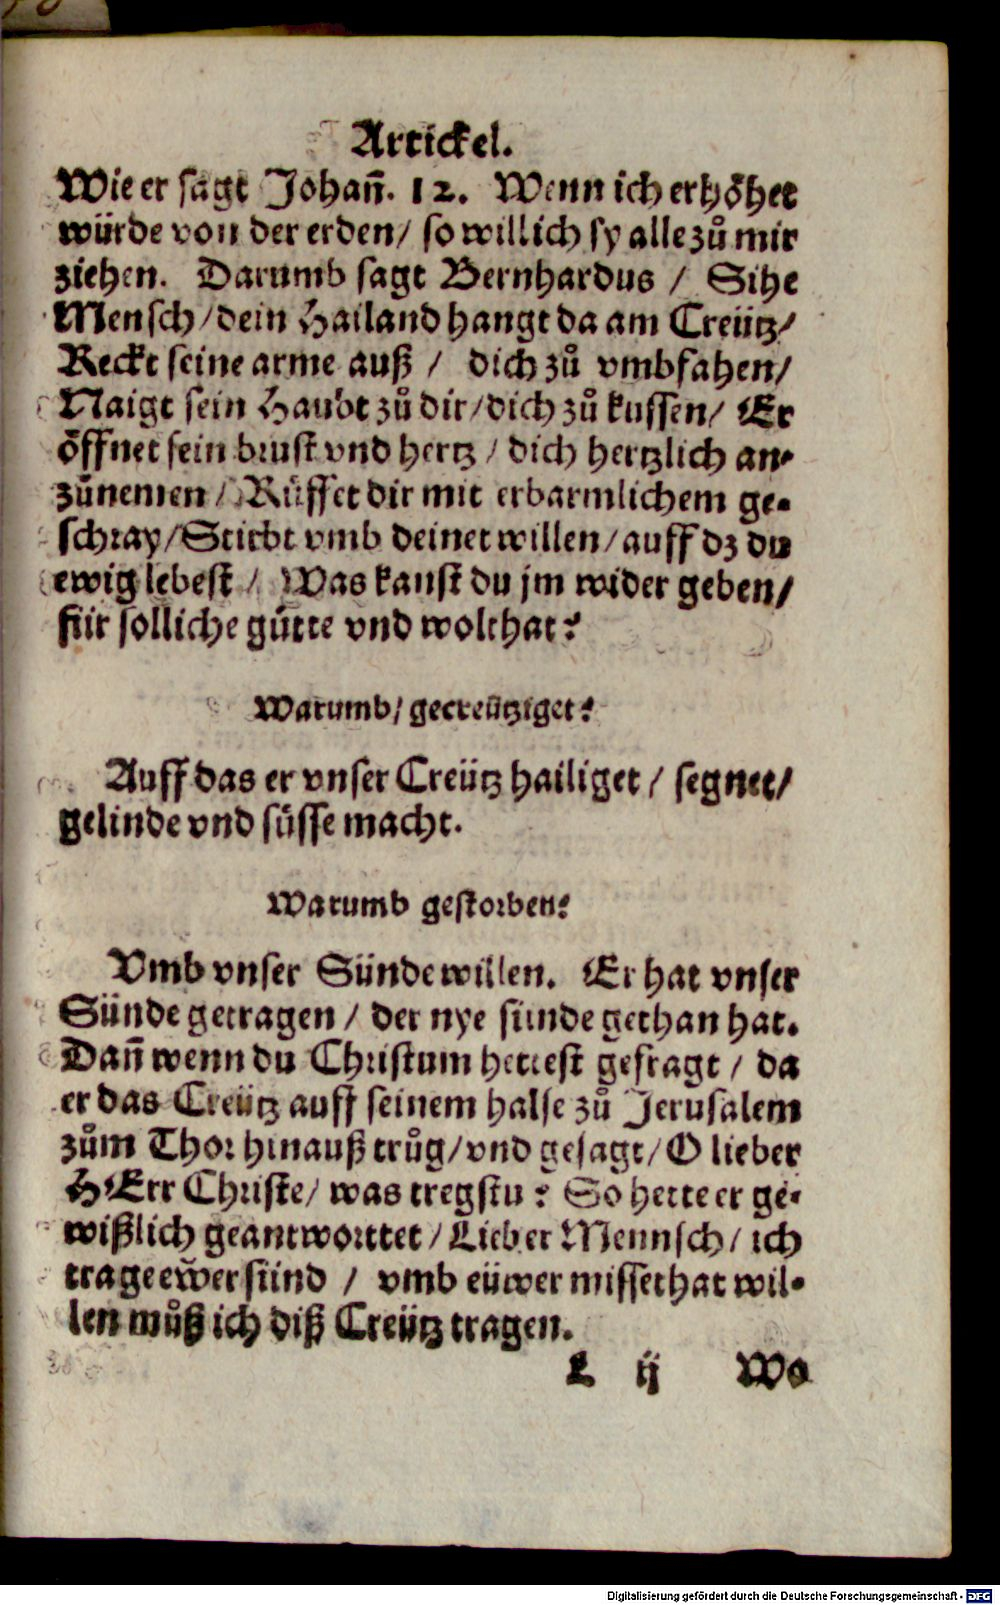 Artickel.
Wie er sagt Johañ. 12. Wenn ich erhöhet
würde von der erden/ so will ich sy alle zů mir
ziehen. Darumb sagt Bernhardus / Sihe
Mensch/dein Hailand hangt da am Creütz/
Reckt seine arme auß / dich zů vmbfahen/
Naigt sein Haubt zů dir/dich zů kussen/ Er
öffnet sein brust vnd hertz / dich hertzlich an-
zůnemen / Rüffet dir mit erbarmlichem ge-
schray/Stirbt vmb deinet willen/auff dz du
ewig lebest / Was kanst du jm wider geben/
für solliche gütte vnd wolthat?
Warumb/ gecreütziget?
Auff das er vnser Creütz hailiget / segnet/
gelinde vnd süsse macht.
Warumb gestorben?
Vmb vnser Sünde willen. Er hat vnser
Sünde getragen / der nye sünde gethan hat.
Dañ wenn du Christum hettest gefragt / da
er das Creütz auff seinem halse zů Jerusalem
zům Thor hinauß trůg/vnd gesagt/O lieber
HErr Christe/ was tregstu? So hette er ge-
wißlich geantworttet/Lieber Mennsch/ ich
trage ew̃er sünd / vmb eüwer missethat wil-
len můß ich diß Creütz tragen.
L ij Wa
Digitalisierung gefördert durch die Deutsche Forschungsgemeinschaft - DFG